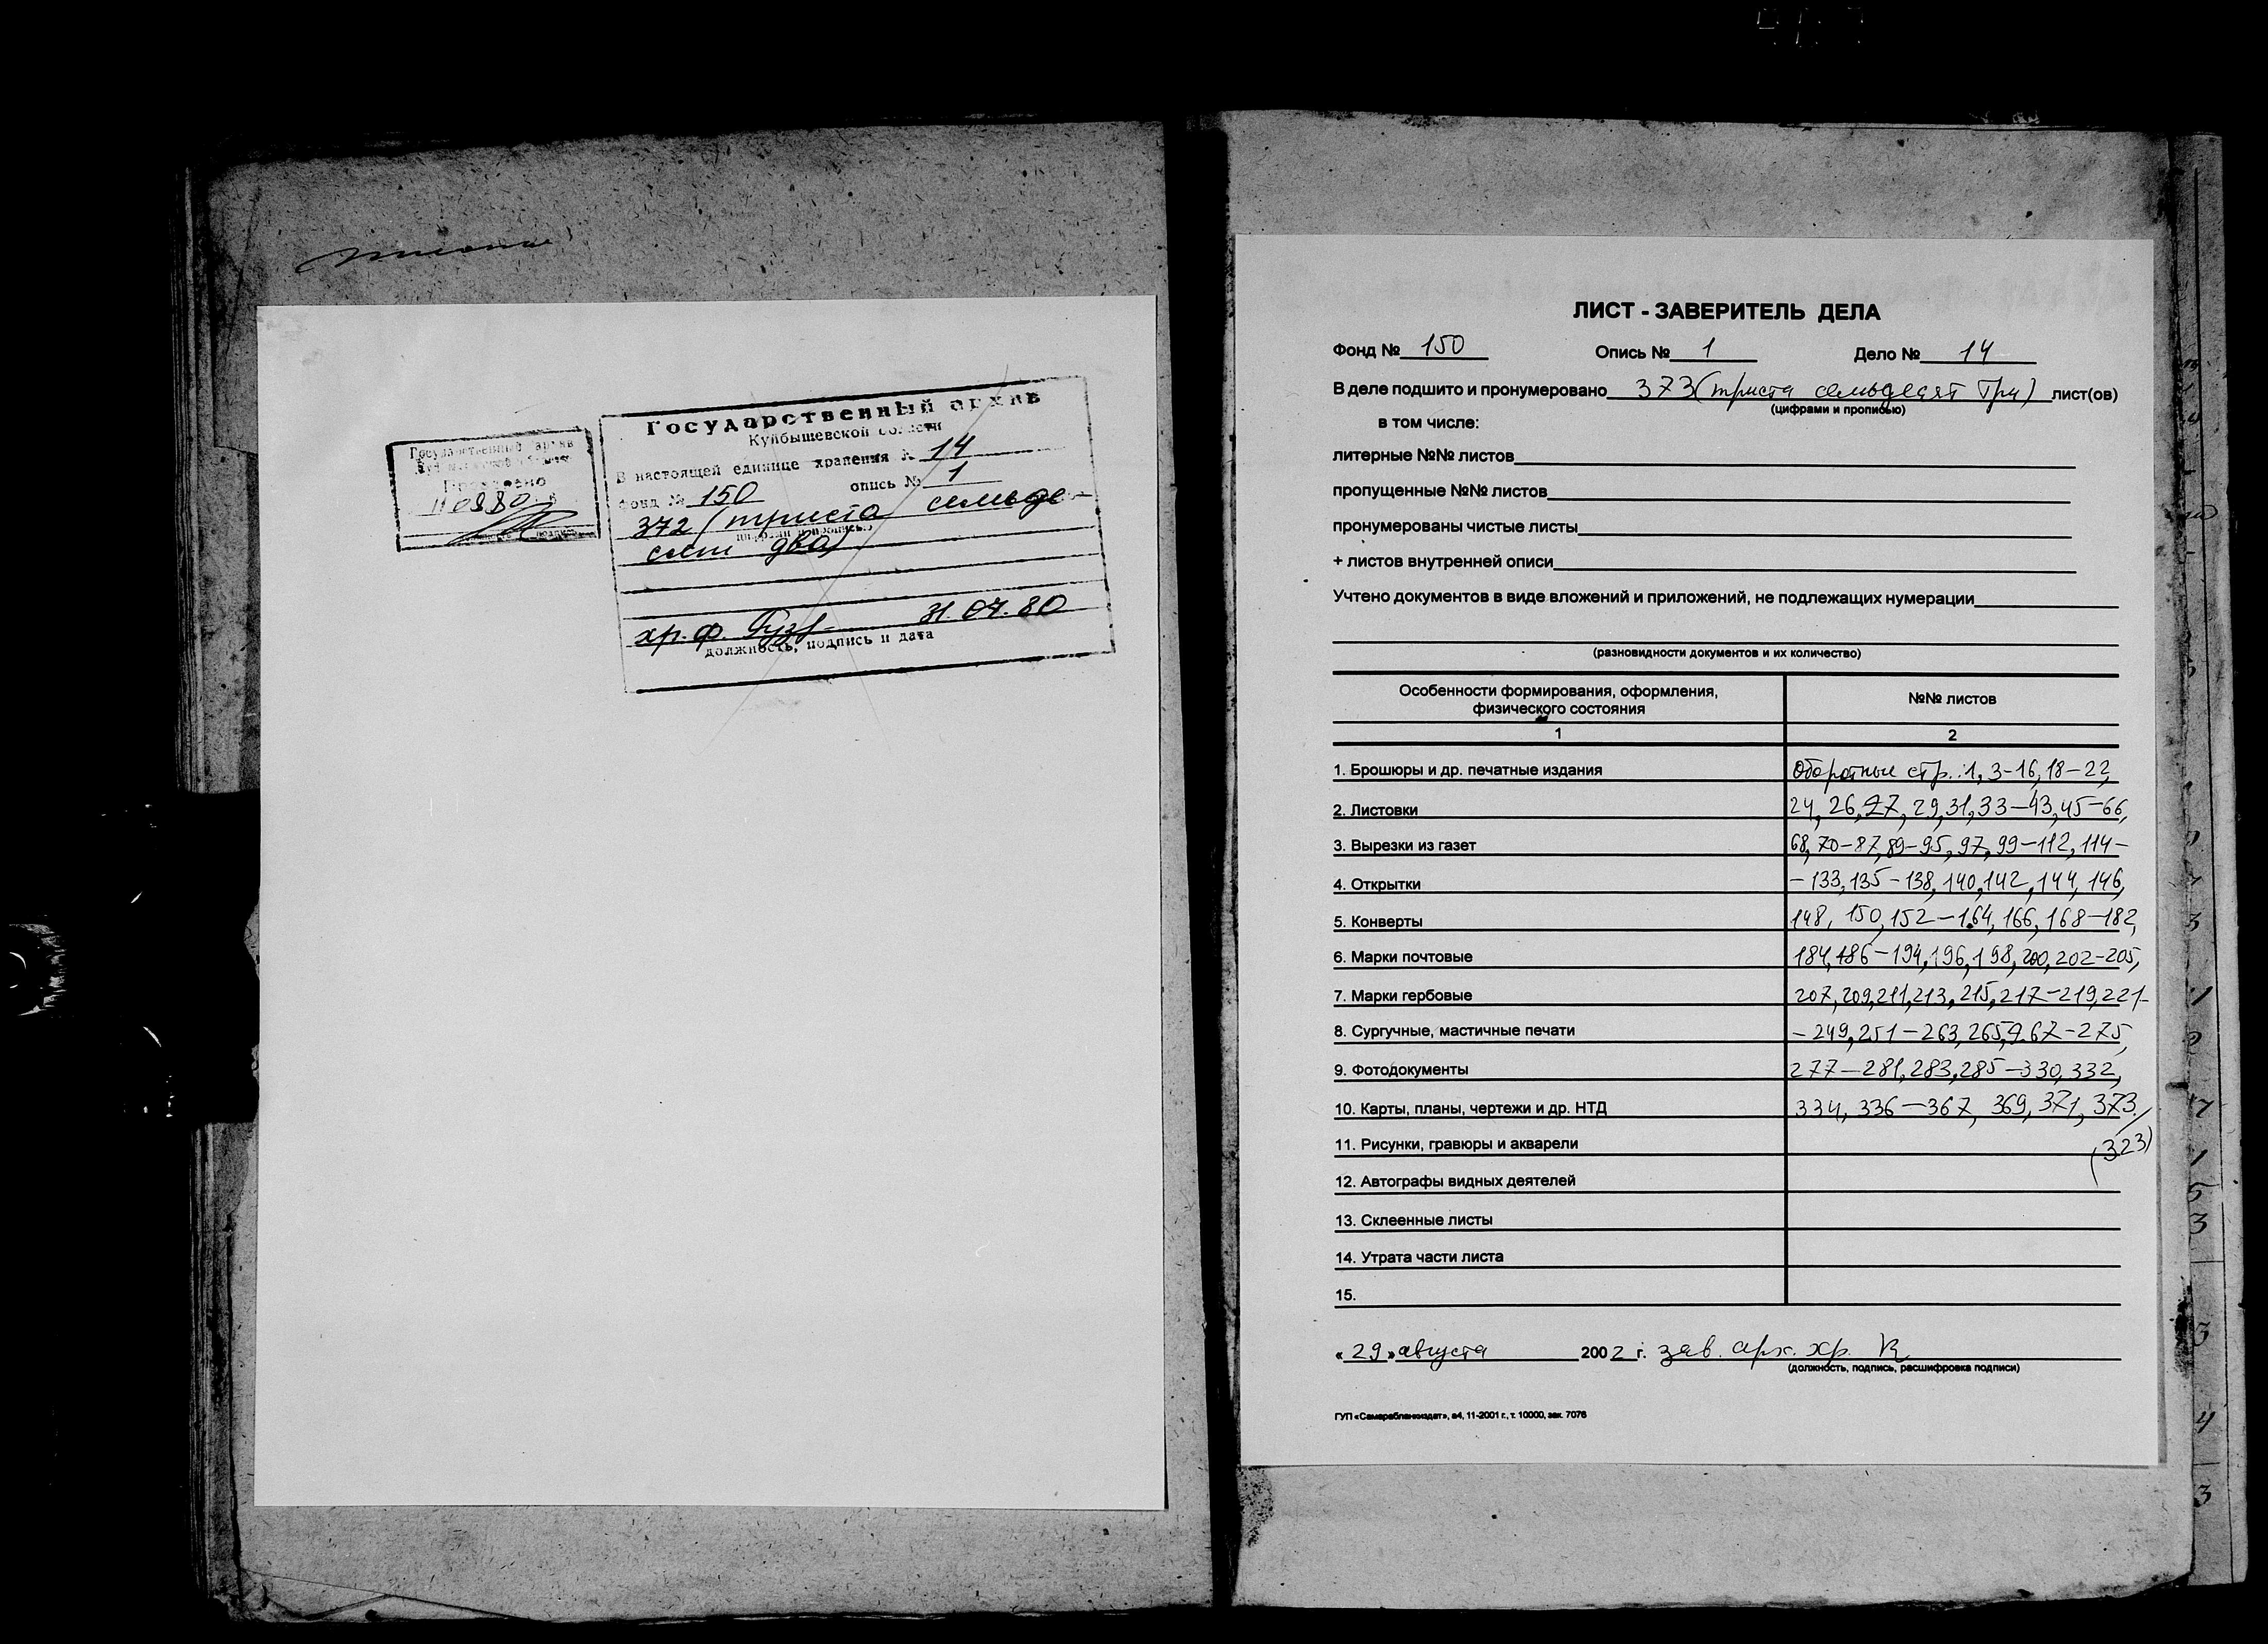 Государственный архив
Проверено
Государственный архив
Куйбышевской области
В настоящей единице хранения № 14
фонд № 150 опись № 1
372 (триста семьде-
цифрами и прописью
сят два)
хр. ф. 31.07.80
должность, подпись и дата
ЛИСТ - ЗАВЕРИТЕЛЬ ДЕЛА
Фонд № 150 Опись № 1 Дело № 14
В деле подшито и пронумеровано 373 (триста семьдесят три) лист(ов)
(цифрами и прописью)
в том числе:
литерные №№ листов
пропущенные №№ листов
пронумерованы чистые листы
+ листов внутренней описи
Учтено документов в виде вложений и приложений, не подлежащих нумерации
(разновидности документов и их количество)
Особенности формирования, оформления, физического состояния №№ листов
1 2
1. Брошюры и др. печатные издания Оборотные стр.: 1, 3-16, 18-22,
2. Листовки 24, 26, 27, 29, 31, 33-43, 45-66,
3. Вырезки из газет 68, 70-87, 89-95, 97, 99-112, 114-
4. Открытки -133, 135-138, 140, 142, 144, 146,
5. Конверты 148, 150, 152-164, 166, 168-182,
6. Марки почтовые 184, 186-194, 196, 198, 200, 202-205,
7. Марки гербовые 207, 209, 211, 213, 215, 217-219, 221-
8. Сургучные, мастичные печати -249, 251-263, 265, 267-275,
9. Фотодокументы 277-281, 283, 285-330, 332,
10. Карты, планы, чертежи и др. НТД 334, 336-367, 369, 371, 373.
11. Рисунки, гравюры и акварели (323)
12. Автографы видных деятелей
13. Склеенные листы
14. Утрата части листа
15.
« 29 » августа 2002 г. зав. арх. хр.
(должность, подпись, расшифровка подписи)
ГУП «Самарабланкиздат», а4, 11-2001 г., т. 10000, зак. 7076